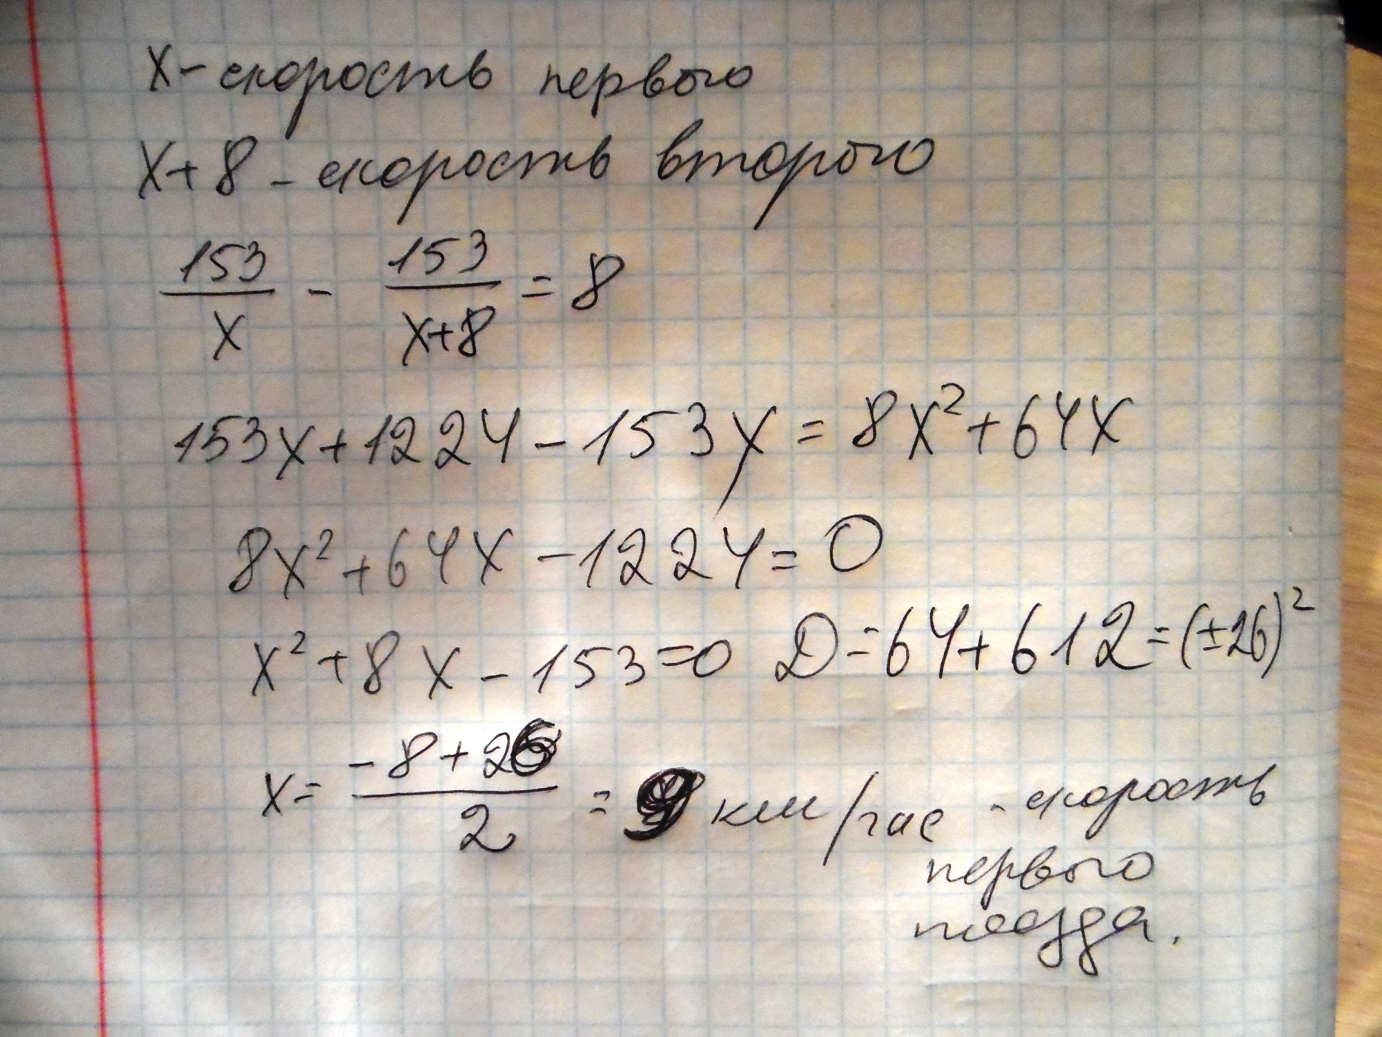 x - скорость первого
x+8 - скорость второго
153/x - 153/(x+8) = 8
153x+1224-153x = 8x²+64x
8x²+64x-1224=0
x²+8x-153=0 D=64+612=(±26)²
x= (-8+26)/2 = 9 км/час - скорость
первого
поезда.